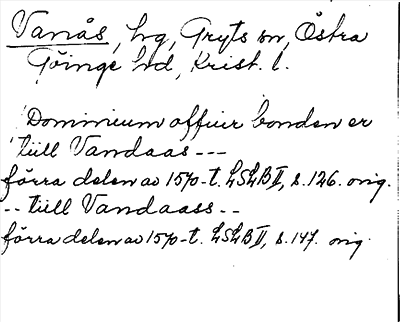 Vanås, hg, Gryts sn, Östra
Göinge hd, Krist. l.
"Dominium offuer bonden er
tiill Vandaas ---
förra delen av 1570-t. LSLB II, s. 126. orig.
-- tiill Vandaass --
förra delen av 1570-t. LSLB II, s. 147. orig.